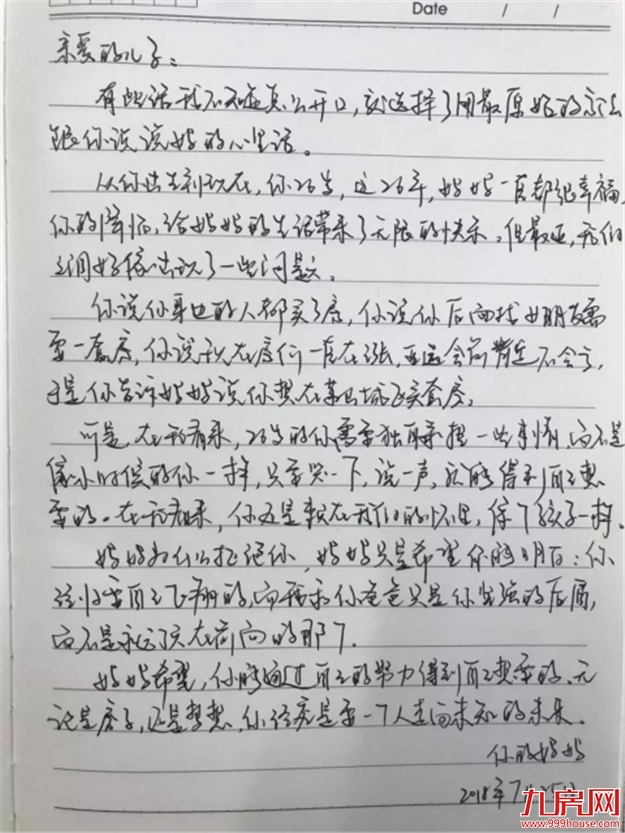 Date / /
亲爱的儿子：
有些话我不知道怎么开口，就选择了用最原始的方法
跟你说说妈的心里话。
从你出生到现在，你26岁，这26年，妈妈一直都很幸福，
你的降临，给妈妈的生活带来了无限的快乐。但最近，我们
之间好像出现了一些问题。
你说你身边的人都买了房，你说你后面找女朋友需
要一套房，你说现在房价一直在涨，亚运会前肯定不会
于是你告诉妈妈说你想在买套房。
可是在我看来，26岁的你需要独自承担一些事情，而不是
像小时候的你一样，只要哭一下，说一声，就能得到自己想
要的。在我看来，你还是躲在我们的怀里，像个孩子一样。
妈妈为什么拒绝你，妈妈只是希望你能明白：你
终归要自己飞翔的，而我和你爸爸只是你坚强的后盾，
而不是永远冲在前面的那个。
妈妈希望，你能通过自己的努力得到自己想要的，无
论是房子，还是梦想，你终究是要一个人走向未知的未来。
你的妈妈
2018年7月15日
九房网
www.999house.com